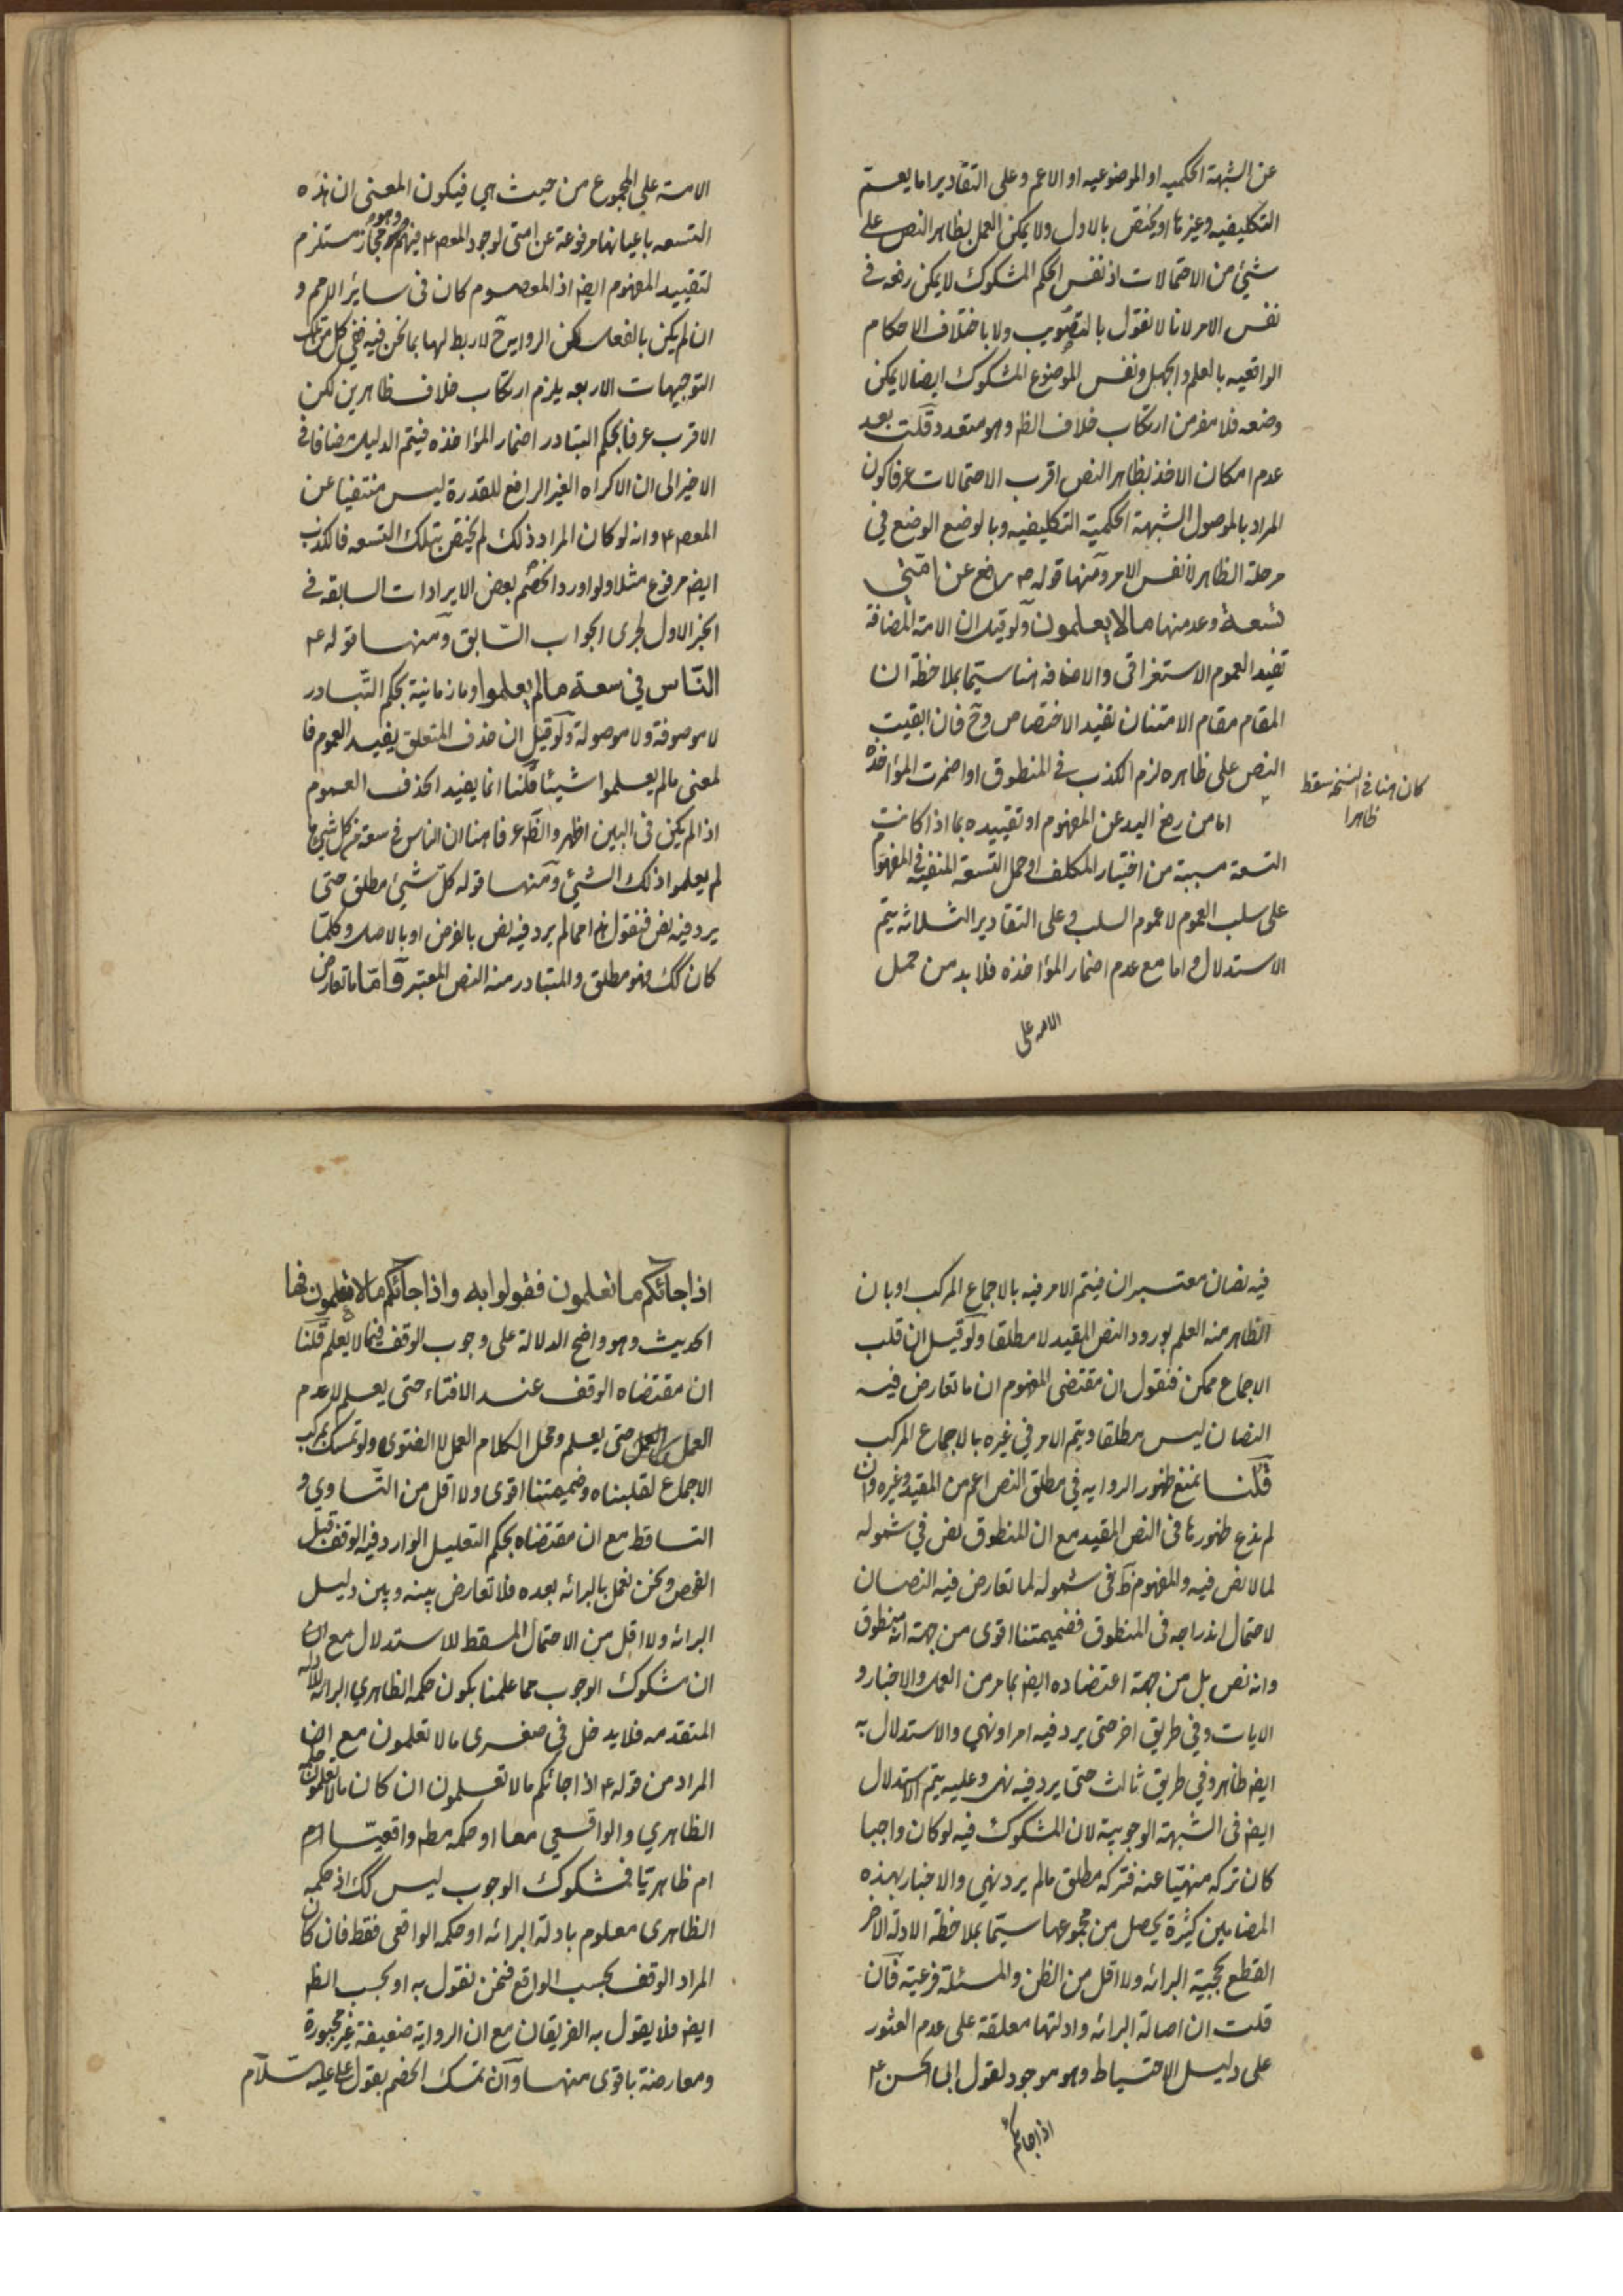 عن الشبهة الحكميه او الموضوعيه او الاعم وعلى التقادير اما يعم
التكليفيه وغيرها او يختص بالاول ولا يمكن العمل بظاهر النص على
شيئ من الاحتمالات اذ نفس الحكم المشكوك لا يمكن رفعه في
نفس الامر لانا لا نقول بالتصويب ولا باختلاف الاحكام
الواقعيه بالعلم والجهل ونفس الموضوع المشكوك ايضا لا يمكن
وضعه فلا مفر من ارتكاب خلاف الظ وهو متعدد وقلت بعد
عدم امكان الاخذ بظاهر النص اقرب الاحتمالات عرفا كون
المراد بالموصول الشبهة الحكمية التكليفيه وبالوضع الوضع في
مرحلة الظاهر لا نفس الامر ومنها قوله ص رفع عن امتي
تسعة وعد منها مالا يعلمون ولو قيل ان الامة المضافة
تفيد العموم الاستغراقى والاضافه هنا سيما بملاحظة ان
المقام مقام الامتنان تفيد الاختصاص وح فان ابقيت
النص على ظاهره لزم الكذب في المنطوق او اضمرت المؤاخذة
كان هنا في النسخه سقط
ظاهرا
اما من رفع اليد عن المفهوم او تقييده بما اذا كانت
التسعة مسببة من اختيار المكلف او حمل التسعة المنفية في المفهوم
على سلب العموم لا عموم السلب وعلى التقادير الثلاثه يتم
الاستدلال واما مع عدم اضمار المؤاخذه فلا بد من حمل
الامه على
الامة على المجموع من حيث هي فيكون المعنى ان هذه
التسعه باعيانها مرفوعة عن امتى لوجود المعص ع فيهم وهو مجاز مستلزم
لتقييد المفهوم ايض اذ المعصوم كان فى ساير الامم و
ان لم يكن بالفعل لكن الرواية ح لا ربط لها بما نحن فيه ففي كل من تلك
التوجيهات الاربعه يلزم ارتكاب خلاف ظاهرين لكن
الاقرب عرفا بحكم التبادر اضمار المؤاخذه فيتم الدليل مضافا في
الاخير الى ان الاكراه الغير الرافع للقدرة ليس منتفيا عن
المعص ع وانه لو كان المراد ذلك لم يختص بتلك التسعه فالكذب
ايض مرفوع مثلا ولو اورد الخصم بعض الايرادات السابقه في
الخبر الاول لجرى الجواب السابق ومنها قوله ع
الناس في سعة مالم يعلموا وما زمانية بحكم التبادر
لا موصوفة ولا موصولة ولو قيل ان حذف المتعلق يفيد العموم فا
لمعنى مالم يعلموا شيئا قلنا انما يفيد الحذف العموم
اذا لم يكن فى البين اظهر والظ عرفا هنا ان الناس في سعة من كل شيئ ما
لم يعلموا ذلك الشيئ ومنها قوله كل شيئ مطلق حتى
يرد فيه نص فنقول هذا مما لم يرد فيه نص بالفرض او بالاصل وكلما
كان كك فهو مطلق والمتبادر منه النص المعتبر واما ما تعارض
فيه نصان معتبران فيتم الامر فيه بالاجماع المركب او بان
الظاهر منه العلم بورود النص المقيد لا مطلقا ولو قيل ان قلب
الاجماع ممكن فنقول ان مقتضى المفهوم ان ما تعارض فيه
النصان ليس مطلقا ويتم الامر في غيره بالاجماع المركب
قلنا نمنع ظهور الروايه في مطلق النص اعم من المقيد وغيره وان
لم ندع ظهورها فى النص المقيد مع ان المنطوق نص في شموله
لما لا نص فيه والمفهوم ظ فى شموله لما تعارض فيه النصان
لاحتمال اندراجه فى المنطوق فضميمتنا اقوى من جهة انه منطوق
وانه نص بل من جهة اعتضاده ايض بما مر من العمل والاخبار و
الايات وفي طريق اخر حتى يرد فيه امر او نهي والاستدلال به
ايض ظاهر وفي طريق ثالث حتى يرد فيه نهى وعليه يتم الاستدلال
ايض فى الشبهة الوجوبية لان المشكوك فيه لو كان واجبا
كان تركه منهيا عنه فتركه مطلق مالم يرد نهي والاخبار بهذه
المضامين كثيرة يحصل من مجموعها سيما بملاحظة الادلة الاخر
القطع بحجية البرائه ولا اقل من الظن والمسئلة فرعية فان
قلت ان اصالة البرائه وادلتها معلقة على عدم العثور
على دليل الاحتياط وهو موجود لقول ابى الحسن ع
اذا جائكم
اذا جائكم ما تعلمون فقولوا به واذا جائكم مالا تعلمون فها
الحديث وهو واضح الدلالة على وجوب الوقف فيما لا يعلم قلنا
ان مقتضاه الوقف عند الافتاء حتى يعلم لا عدم
العمل حتى يعلم ومحل الكلام العمل لا الفتوى ولو تمسك بمركب
الاجماع لقلبناه وضميمتنا اقوى ولا اقل من التساوي و
التساقط مع ان مقتضاه بحكم التعليل الوارد فيه الوقف قبل
الفحص ونحن نعمل بالبرائه بعده فلا تعارض بينه وبين دليل
البرائه ولا اقل من الاحتمال المسقط للاستدلال مع ان
ان مشكوك الوجوب مما علمنا بكون حكمه الظاهري البرائه للادله
المتقدمه فلا يدخل في صغرى مالا تعلمون مع ان
المراد من قوله ع اذا جائكم مالا تعلمون ان كان مالا تعلمون حكمه
الظاهري والواقعي معا او حكمه مطه واقعيا ام
ام ظاهريا فمشكوك الوجوب ليس كك اذ حكمه
الظاهرى معلوم بادلة البرائه او حكمه الواقعى فقط فان كان
المراد الوقف بحسب الواقع فنحن نقول به او بحسب الظ
ايض فلا يقول به الفريقان مع ان الرواية ضعيفة غير مجبورة
ومعارضة باقوى منها وان تمسك الخصم بقول على عليه السلام